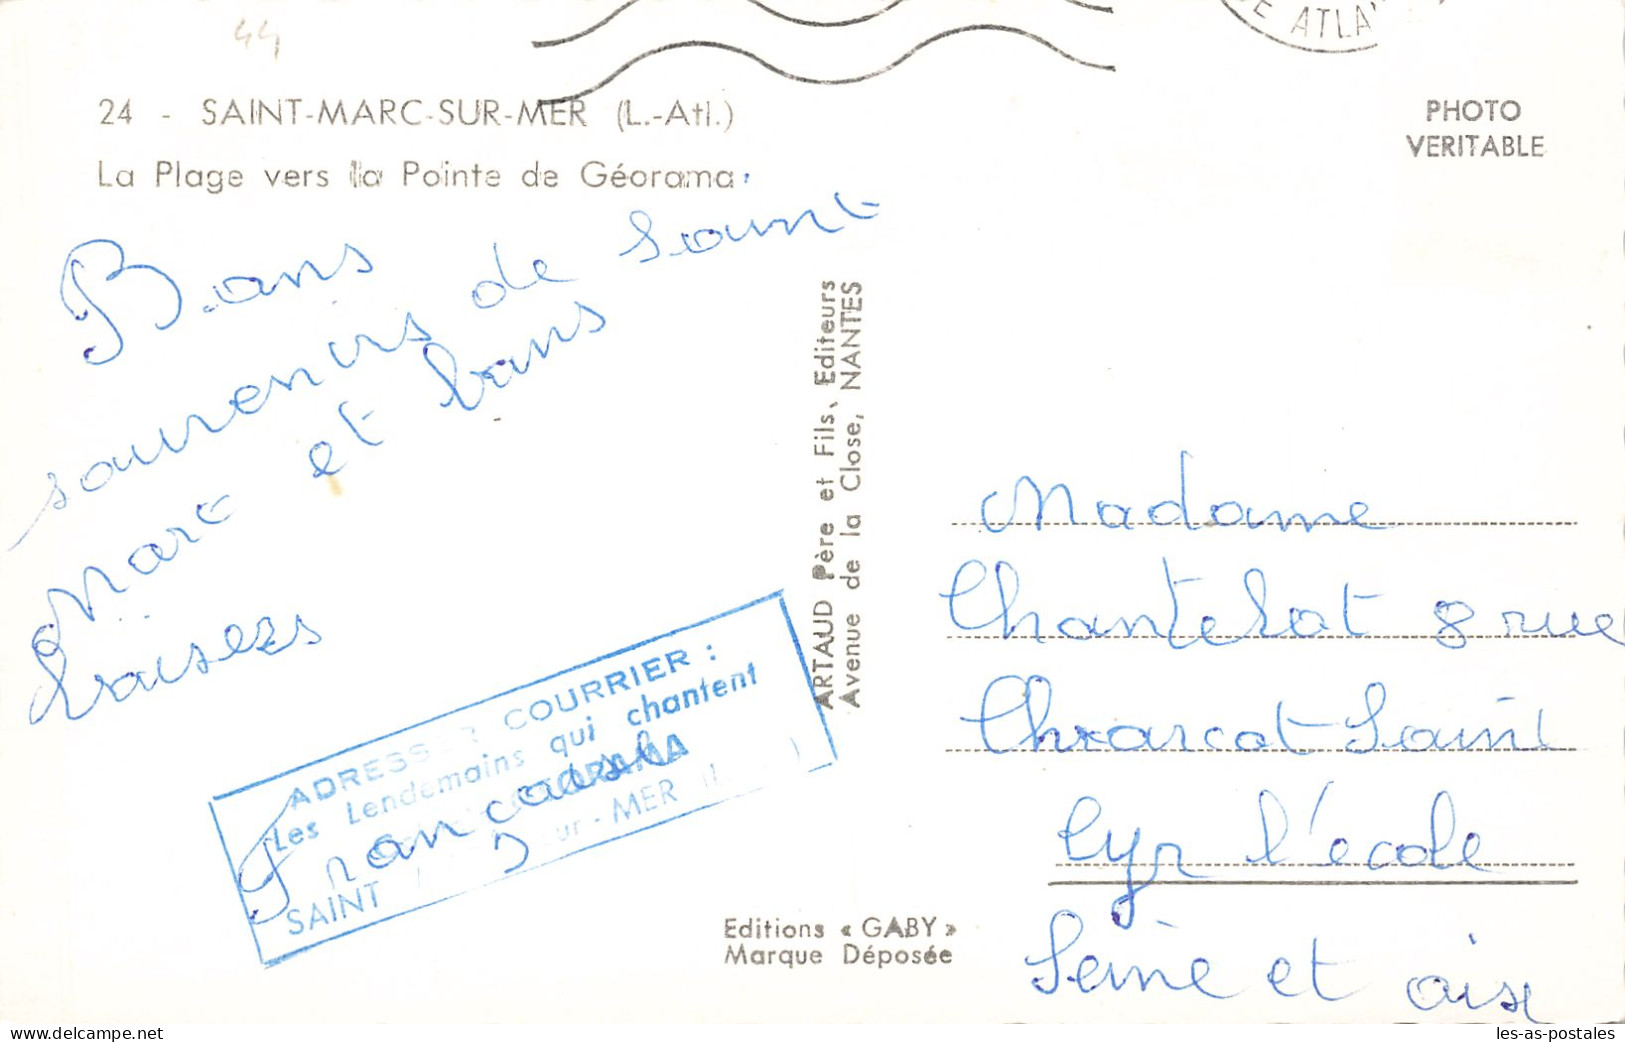 44
DE ATLA
24 - SAINT-MARC-SUR-MER (L.-Atl.)
La Plage vers la Pointe de Géorama
PHOTO
VERITABLE
Bons
souvenirs de Saint
Marc et bons
baisers
Françoise
ADRESSER COURRIER :
Les Lendemains qui chantent
GEORAMA
SAINT ur - MER (L
ARTAUD Père et Fils, Editeurs
Avenue de la Close, NANTES
Editions « GABY »
Marque Déposée
Madame
Chantelot 8 rue
Charcot Saint
Cyr l'école
Seine et oise
les-as-postales
delcampe.net